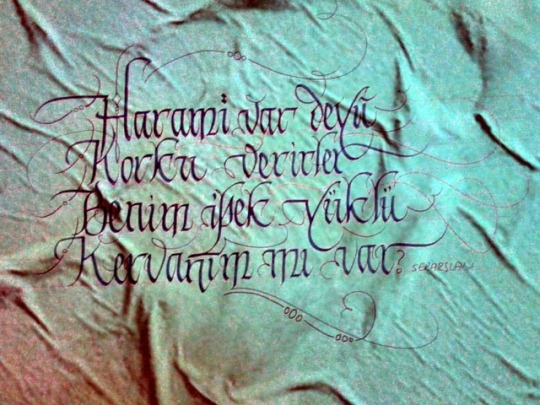 Harami var deyü
Korku verirler
Benim ipek yüklü
Kervanım mı var?
SERARSLAN